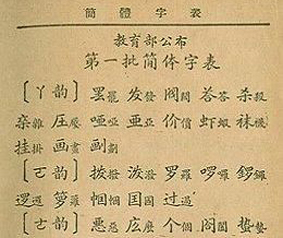 簡體字表
教育部公布
第一批简体字表
〔ㄚ韵〕 罢罷 发發 阀閥 答荅 杀殺
杂雜 压壓 哑啞 亚亞 价價 虾蝦 袜襪
挂掛 画畫 划劃
〔ㄛ韵〕 拨撥 泼潑 罗羅 啰囉 锣鑼
逻邏 箩籮 帼幗 囯國 过過
〔ㄜ韵〕 恶惡 庅麽 个個 阁閣 蛰蟄